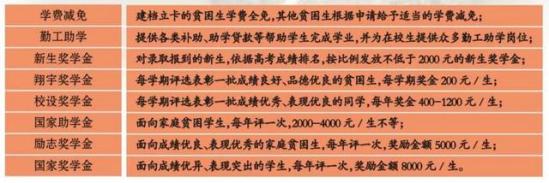 学费减免 建档立卡的贫困生学费全免,其他贫困生根据申请给于适当的学费减免;
勤工助学 提供各类补助、助学贷款等帮助学生完成学业,并为在校生提供众多勤工助学岗位;
新生奖学金 对录取报到的新生,依据高考成绩排名,按比例发放不低于2000元的新生奖学金;
翔宇奖学金 每学期评选表彰一批成绩良好、品德优良的贫困生,每学期奖金200元/生;
校设奖学金 每学期评选表彰一批成绩优秀、表现优良的同学,每年奖金400-1200元/生;
国家助学金 面向家庭贫困学生,每年评一次,2000-4000元/生不等;
励志奖学金 面向成绩优良、表现优秀的家庭贫困生,每年评一次,奖励金额5000元/生;
国家奖学金 面向成绩优异、表现突出的学生,每年评一次,奖励金额8000元/生。